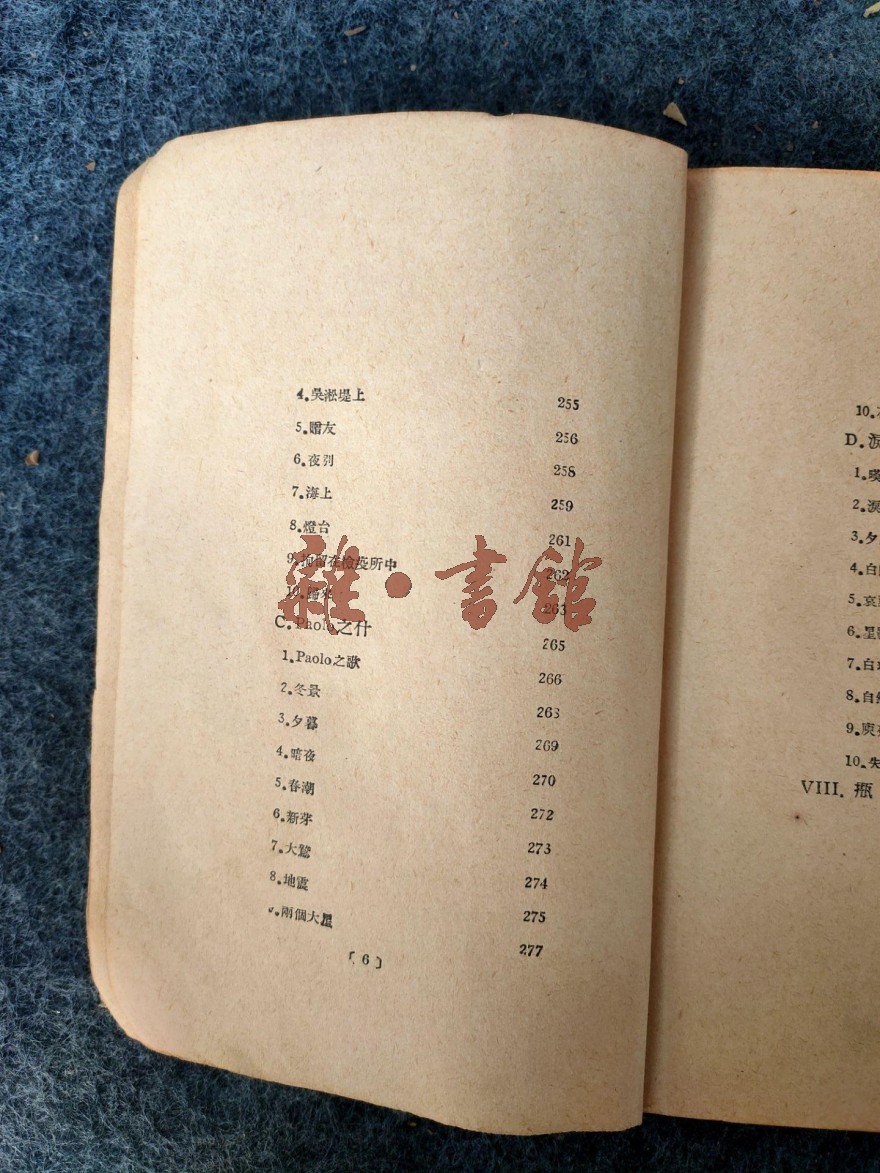 4.吳淞堤上 255
5.贈友 256
6.夜別 258
7.海上 259
8.燈台 261
9.拘留在檢疫所中 262
10.歸來 263
C.Paolo之什 265
1.Paolo之歌 266
2.冬景 268
3.夕暮 269
4.暗夜 270
5.春潮 272
6.新芽 273
7.大鷲 274
8.地震 275
9.兩個大星 277
〔6〕
雜·書館
10.
D.淚
1.
2.淚
3.夕
4.白
5.哀
6.星
7.白
8.自然
9.庚
10.失
VIII.瓶